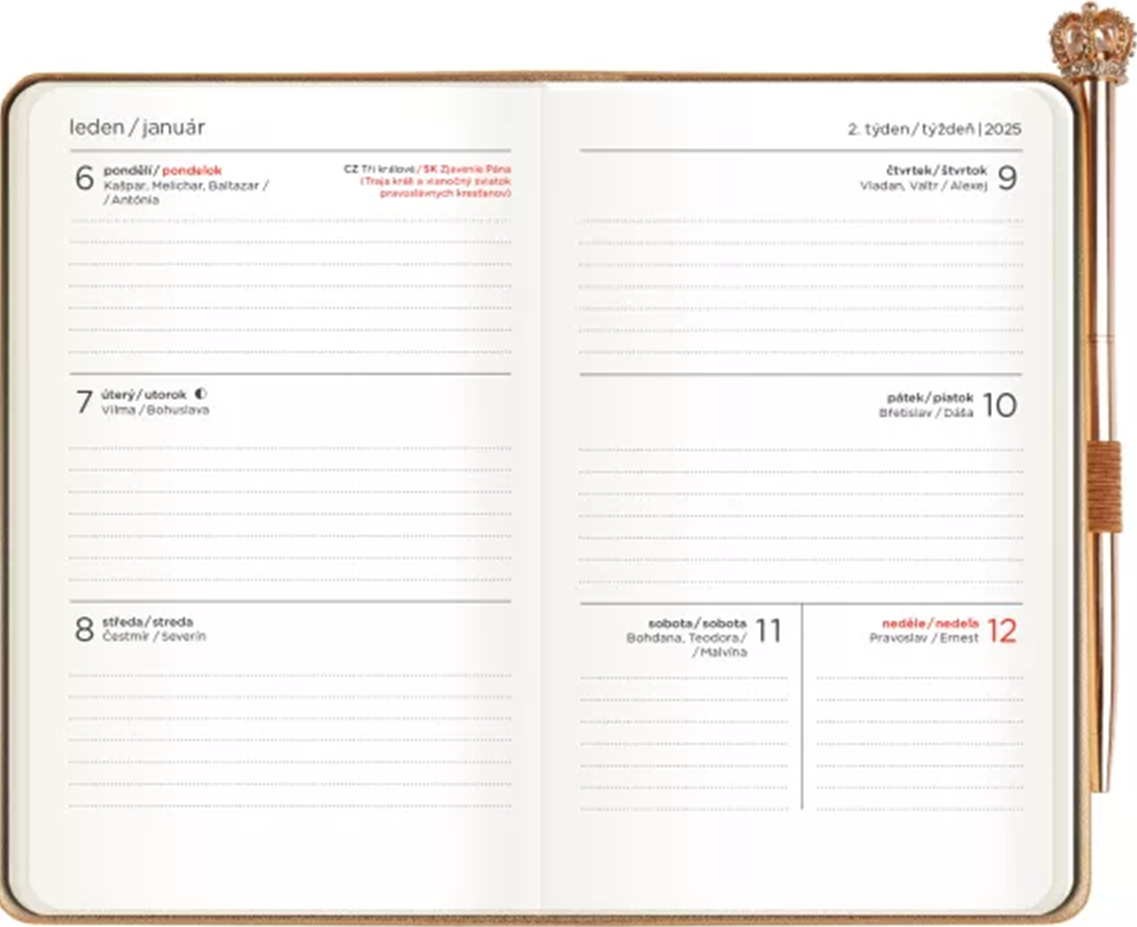 leden / január
6 pondělí / pondelok
Kašpar, Melichar, Baltazar /
/ Antónia
CZ Tři králové / SK Zjavenie Pána
(Traja králi a vianočný sviatok
pravoslávnych kresťanov)
7 úterý / utorok
Vilma / Bohuslava
8 středa / streda
Čestmír / Severín
2. týden / týždeň | 2025
čtvrtek / štvrtok 9
Vladan, Valtr / Alexej
pátek / piatok 10
Břetislav / Dáša
sobota / sobota 11
Bohdana, Teodora /
/ Malvína
neděle / nedeľa 12
Pravoslav / Ernest